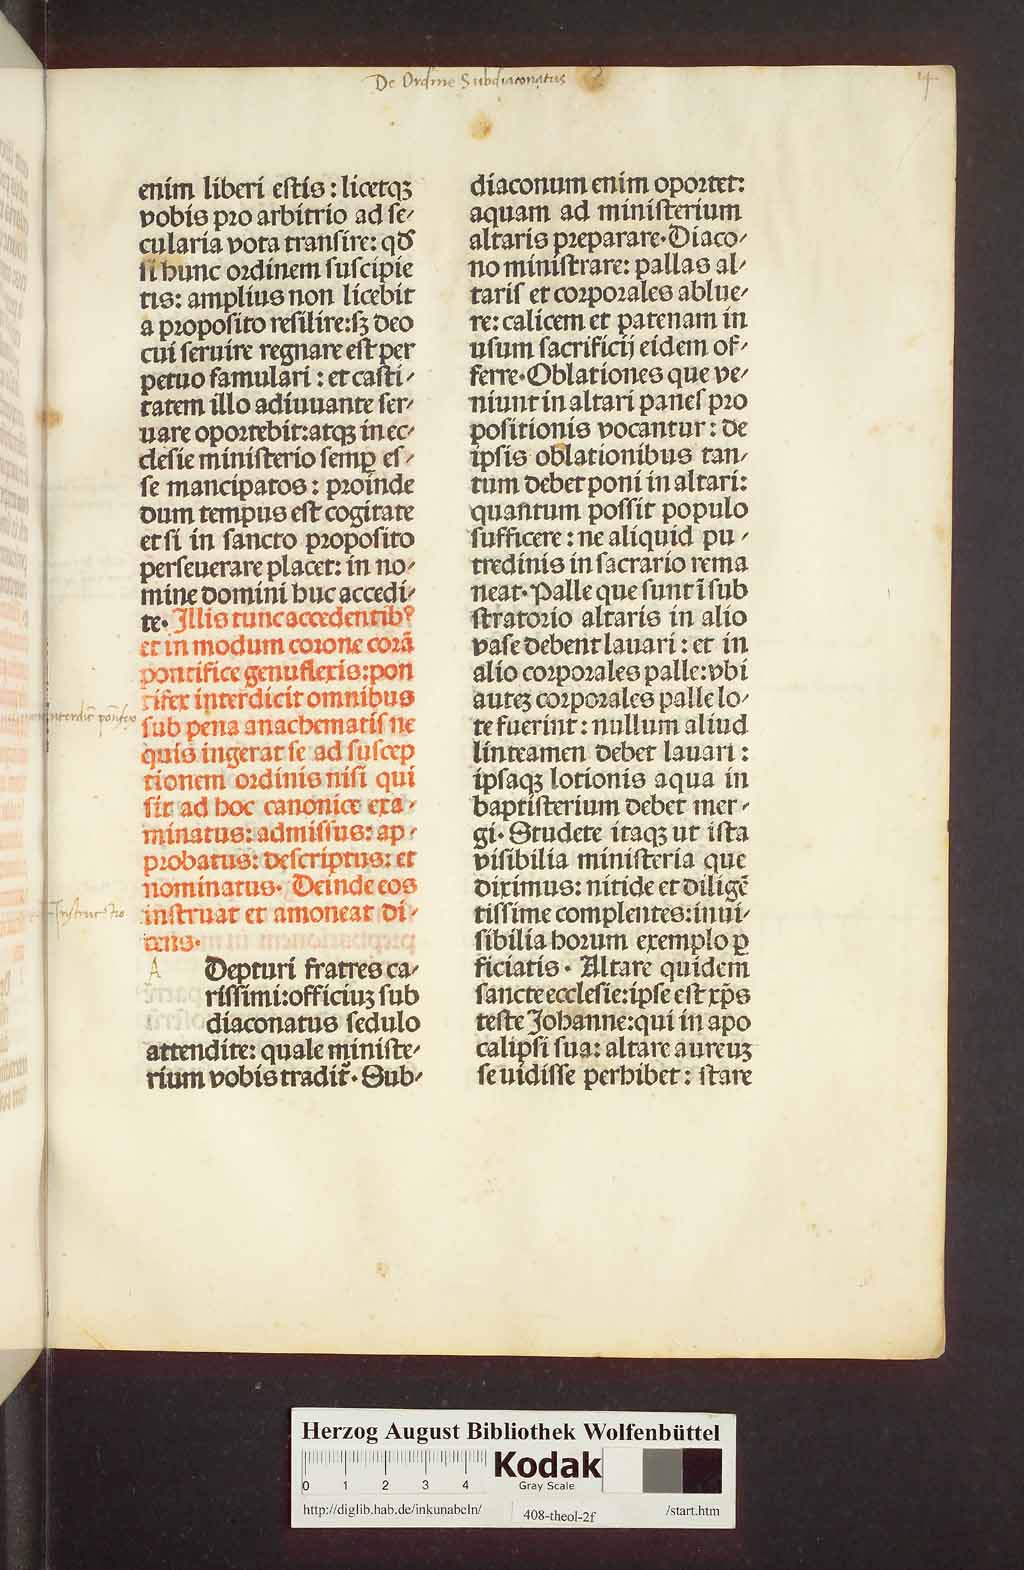 De Ordine Subdiaconatus
14
enim liberi estis : licetqꝫ
vobis pro arbitrio ad se⸗
cularia vota transire: qđ
si hunc ordinem suscipie
tis: amplius non licebit
a proposito resilire:sꝫ deo
cui seruire regnare est per
petuo famulari : et casti⸗
tatem illo adiuuante ser⸗
uare oportebit:atqꝫ in ec⸗
clesie ministerio semꝑ es⸗
se mancipatos : proinde
dum tempus est cogitate
et si in sancto proposito
perseuerare placet: in no⸗
mine domini huc accedi⸗
te. Illis tunc accedentibꝰ
et in modum corone corā
pontifice genuflexis:pon
tifex interdicit omnibus
sub pena anathematis ne
quis ingerat se ad suscep
tionem ordinis nisi qui
sit ad hoc canonice exa⸗
minatus: admissus: ap⸗
probatus: descriptus: et
nominatus. Deinde eos
instruat et amoneat di⸗
cens.
A Depturi fratres ca⸗
rissimi:officiuꝫ sub
diaconatus sedulo
attendite: quale ministe⸗
rium vobis tradit᷑. Sub⸗
Instructio
diaconum enim oportet:
aquam ad ministerium
altaris preparare. Diaco⸗
no ministrare: pallas al⸗
taris et corporales ablue⸗
re: calicem et patenam in
usum sacrificij eidem of⸗
ferre. Oblationes que ve⸗
niunt in altari panes pro
positionis vocantur : de
ipsis oblationibus tan⸗
tum debet poni in altari:
quantum possit populo
sufficere : ne aliquid pu⸗
tredinis in sacrario rema
neat. Palle que sunt ī sub
stratorio altaris in alio
vase debent lauari : et in
alio corporales palle:vbi
auteꝫ corporales palle lo⸗
te fuerint : nullum aliud
linteamen debet lauari :
ipsaqꝫ lotionis aqua in
baptisterium debet mer⸗
gi. Studete itaqꝫ ut ista
visibilia ministeria que
diximus: nitide et diligē
tissime complentes:inui⸗
sibilia horum exemplo ꝑ
ficiatis. Altare quidem
sancte ecclesie:ipse est xp̄s
teste Johanne:qui in apo
calipsi sua: altare aureuꝫ
se uidisse perhibet : stare
Herzog August Bibliothek Wolfenbüttel
0 1 2 3 4
Kodak
Gray Scale
http://diglib.hab.de/inkunabeln/ 408-theol-2f /start.htm